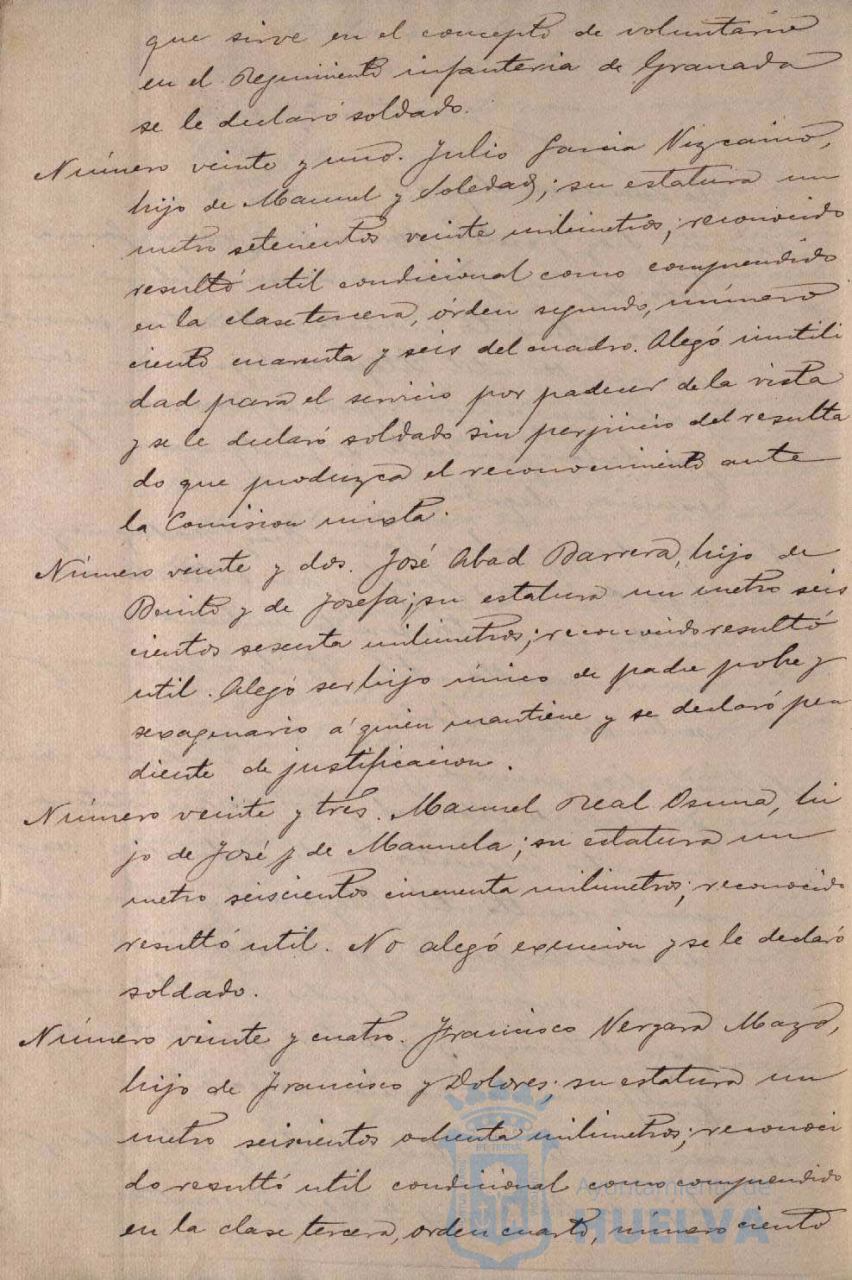 que sirve en el concepto de voluntario
en el Regimiento infanteria de Granada
se le declaró soldado.
Número veinte y uno. Julio Garcia Vizcaino,
hijo de Manuel y Soledad; su estatura un
metro setecientos veinte milimetros; reconocido
resultó util condicional como comprendido
en la clase tercera, órden segundo, número
ciento cuarenta y seis del cuadro. Alegó inutili
dad para el servicio por padecer de la vista
y se le declaró soldado sin perjuicio del resulta
do que produzca el reconocimiento ante
la Comision mixta.
Número veinte y dos. José Abad Barrera, hijo de
Benito y de Josefa; su estatura un metro seis
cientos sesenta milimetros; reconocido resultó
util. Alegó ser hijo único de padre pobre y
sexagenario á quien mantiene y se declaró pen
diente de justificacion.
Número veinte y tres. Manuel Real Osuna, hi
jo de José y de Manuela; su estatura un
metro seiscientos cincuenta milimetros; reconocido
resultó util. No alegó exencion y se le declaró
soldado.
Número veinte y cuatro. Francisco Vergara Mazo,
hijo de Francisco y Dolores; su estatura un
metro seiscientos ochenta milimetros; reconoci
do resultó util condicional como comprendido
en la clase tercera, orden cuarto, número ciento
Ayuntamiento de
HUELVA